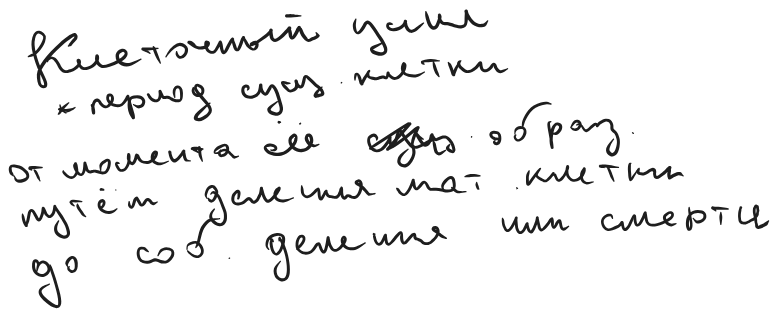 Клеточный цикл
* период сущ. клетки
от момента её образ.
путём деления мат. клетки
до соб. деления или смерти